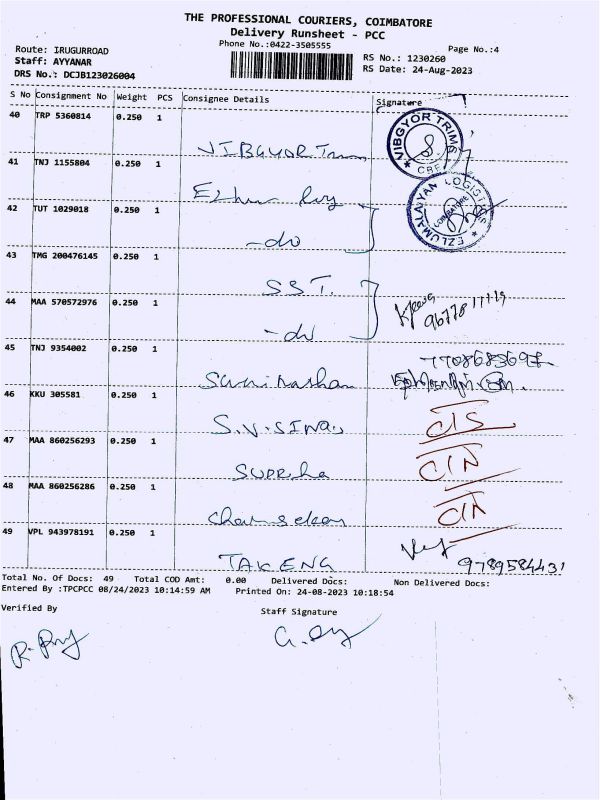 THE PROFESSIONAL COURIERS, COIMBATORE
Delivery Runsheet - PCC
Phone No.:0422-3505555
Page No.:4
Route: IRUGURROAD
Staff: AYYANAR
DRS No.: DCJB123026004
RS No.: 1230260
RS Date: 24-Aug-2023
S No Consignment No Weight PCS Consignee Details Signature
40 TRP 5360814 0.250 1
VIBGYOR Trims
VIBGYOR TRIMS CBE
41 TNJ 1155804 0.250 1
EZLUMALAIYAN LOGISTICS COIMBATORE
42 TUT 1029018 0.250 1
-do
43 TMG 200476145 0.250 1
SST.
44 MAA 570572976 0.250 1
-do
96778 17719
45 TNJ 9354002 0.250 1
7708683697
46 KKU 305581 0.250 1
S.V.SINA.
C/S
47 MAA 860256293 0.250 1
C/N
48 MAA 860256286 0.250 1
C/N
49 VPL 943978191 0.250 1
TAKENG
9789584431
Total No. Of Docs: 49 Total COD Amt: 0.00 Delivered Docs: Non Delivered Docs:
Entered By :TPCPCC 08/24/2023 10:14:59 AM Printed On: 24-08-2023 10:18:54
Verified By Staff Signature